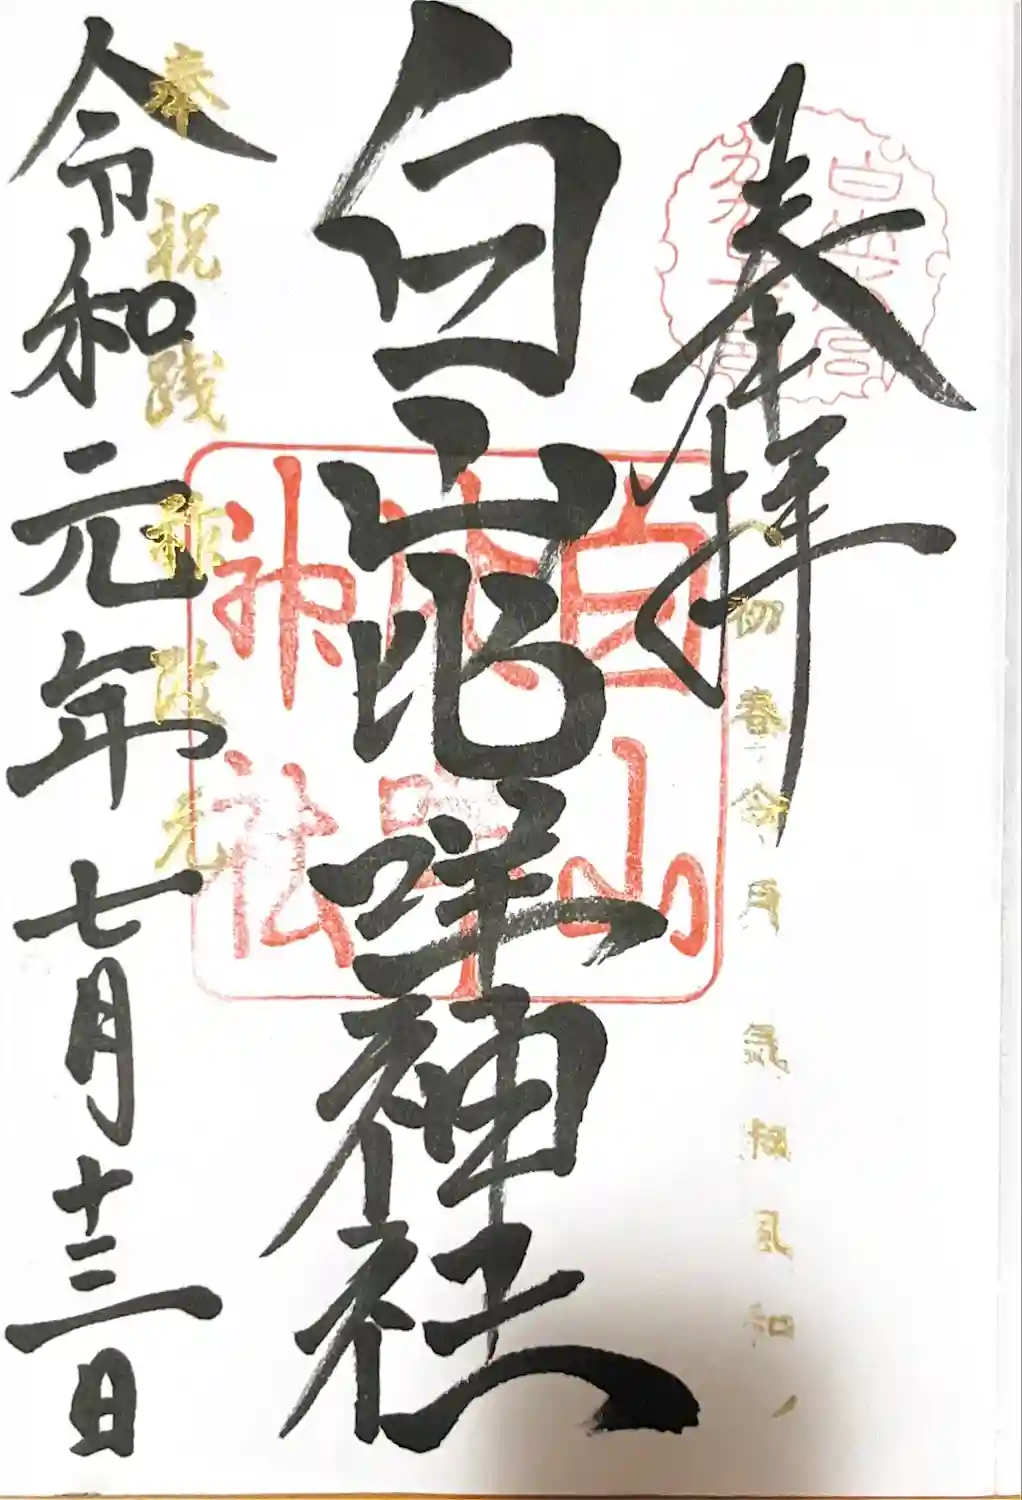 奉拝
「初春令月 氣淑風和」
白山比咩神社
白山比咩神社
奉祝践祚改元
令和元年七月十三日